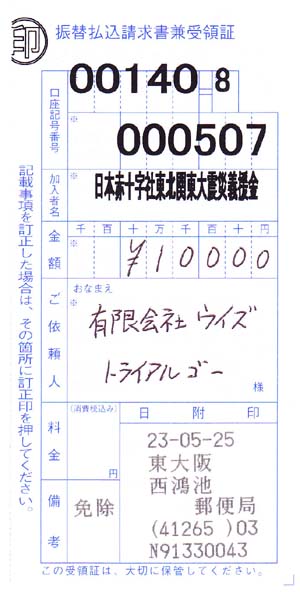 印
振替払込請求書兼受領証
口座記号番号
00140 8
※
000507
加入者名
※
日本赤十字社東北関東大震災義援金
金額
千 百 十 万 千 百 十 円
※
¥10000
ご依頼人
おなまえ
※
有限会社 ウイズ
トライアルゴー
様
料金
(消費税込み)
円
日附印
23-05-25
東大阪
西鴻池
郵便局
(41265 )03
N91330043
備考
免除
この受領証は、大切に保管してください。
記載事項を訂正した場合は、その箇所に訂正印を押してください。